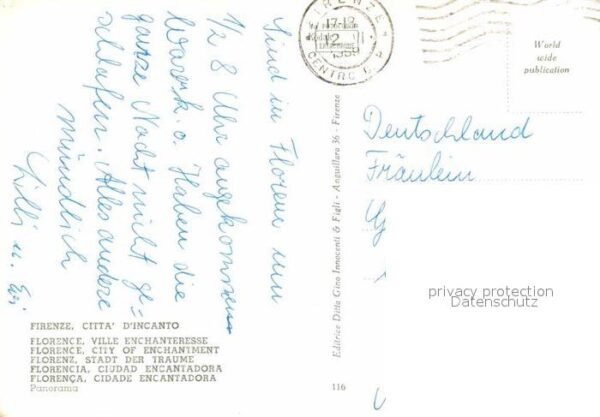 Sind in Florenz um
1/2 8 Uhr angekommen
Haben die
ganze Nacht nicht ge-
schlafen. Alles andere
mündlich
FIRENZE
17-18
12. II
1959
CENTRO
World
wide
publication
Deutschland
Fräulein
privacy protection
Datenschutz
Editrice Ditta Gino Innocenti & Figli - Anguillara 36 - Firenze
FIRENZE, CITTA' D'INCANTO
FLORENCE, VILLE ENCHANTERESSE
FLORENCE, CITY OF ENCHANTMENT
FLORENZ, STADT DER TRAUME
FLORENCIA, CIUDAD ENCANTADORA
FLORENÇA, CIDADE ENCANTADORA
Panorama
116